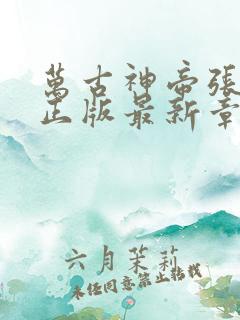 萬古神帝張
正版最新章
六月茉莉
未经同意禁止转载